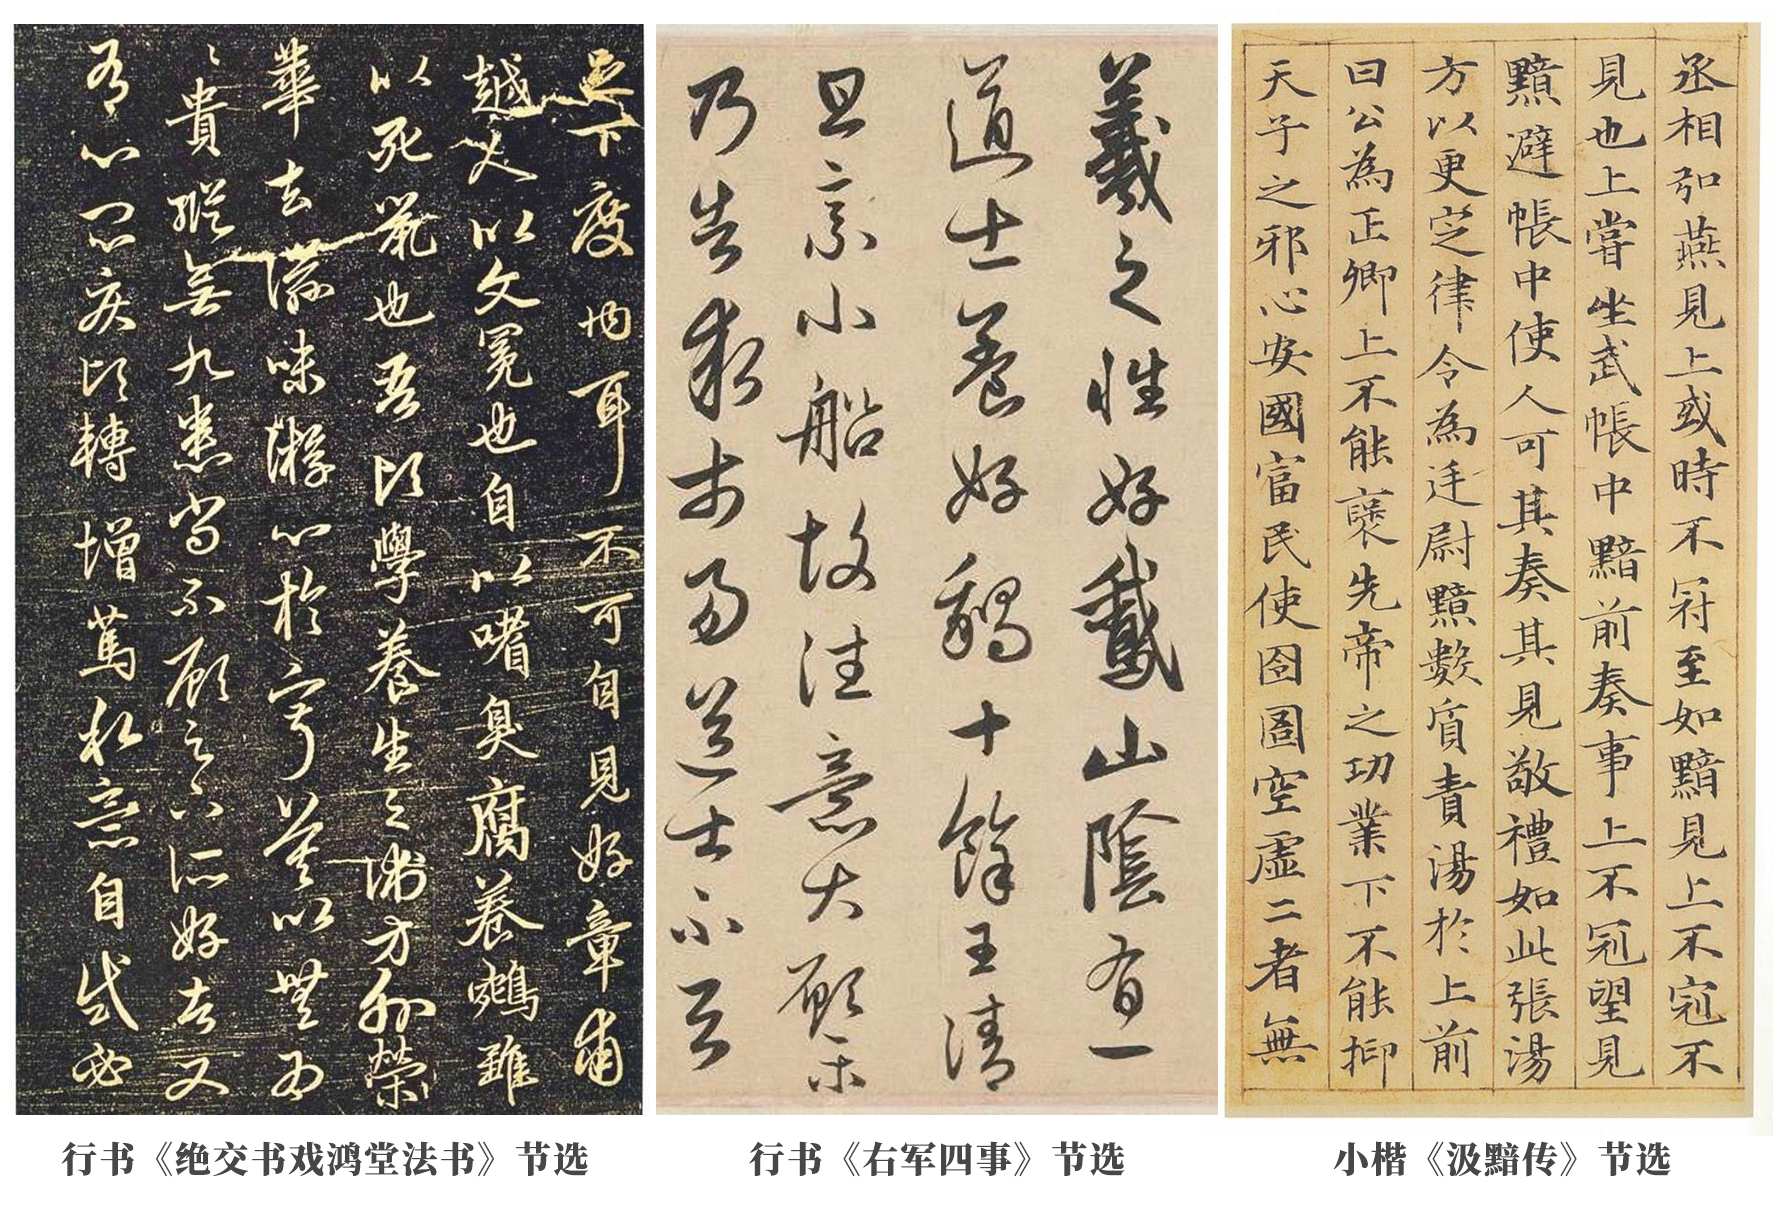 足下度内耳不可自見好章甫
越人以文冕也自以嗜臭腐養鵷雛
以死鼠也吾頃學養生之術方外榮
華去滋味游心於寂莫以無为
〻貴縱無九患尚不顧足下所好者又
有心悶疾頃轉增篤私意自試必
行书《绝交书戏鸿堂法书》节选
羲之性好鵞山陰有一
道士養好鵝十餘王清
旦乘小船故往意大願樂
乃告求市易道士不与
行书《右军四事》节选
丞相弘燕見上或時不冠至如黯見上不冠不
見也上嘗坐武帳中黯前奏事上不冠望見
黯避帳中使人可其奏其見敬禮如此張湯
方以更定律令為廷尉黯數質責湯於上前
曰公為正卿上不能襃先帝之功業下不能抑
天子之邪心安國富民使囹圄空虛二者無
小楷《汲黯传》节选